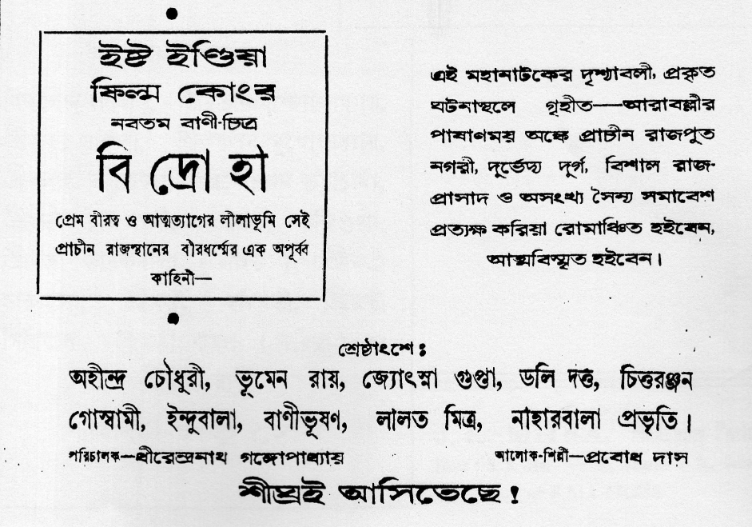 ইষ্ট ইণ্ডিয়া
ফিল্ম কোংর
নবতম বাণী-চিত্র
বিদ্রোহী
প্রেম বীরত্ব ও আত্মত্যাগের লীলাভূমি সেই
প্রাচীন রাজস্থানের বীরধর্ম্মের এক অপূর্ব্ব
কাহিনী—
এই মহানাটকের দৃশ্যাবলী, প্রকৃত
ঘটনাস্থলে গৃহীত—আরাবল্লীর
পাষাণময় অঙ্কে প্রাচীন রাজপুত
নগরী, দুর্ভেদ্য দুর্গ, বিশাল রাজ-
প্রাসাদ ও অসংখ্য সৈন্য সমাবেশ
প্রত্যক্ষ করিয়া রোমাঞ্চিত হইবেন,
আত্মবিস্মৃত হইবেন।
শ্রেষ্ঠাংশে :
অহীন্দ্র চৌধুরী, ভূমেন রায়, জ্যোৎস্না গুপ্তা, ডলি দত্ত, চিত্তরঞ্জন
গোস্বামী, ইন্দুবালা, বাণীভূষণ, লালত মিত্র, নাহারবালা প্রভৃতি।
পরিচালক—ধীরেন্দ্রনাথ গঙ্গোপাধ্যায়
আলোক-শিল্পী—প্রবোধ দাস
শীঘ্রই আসিতেছে !